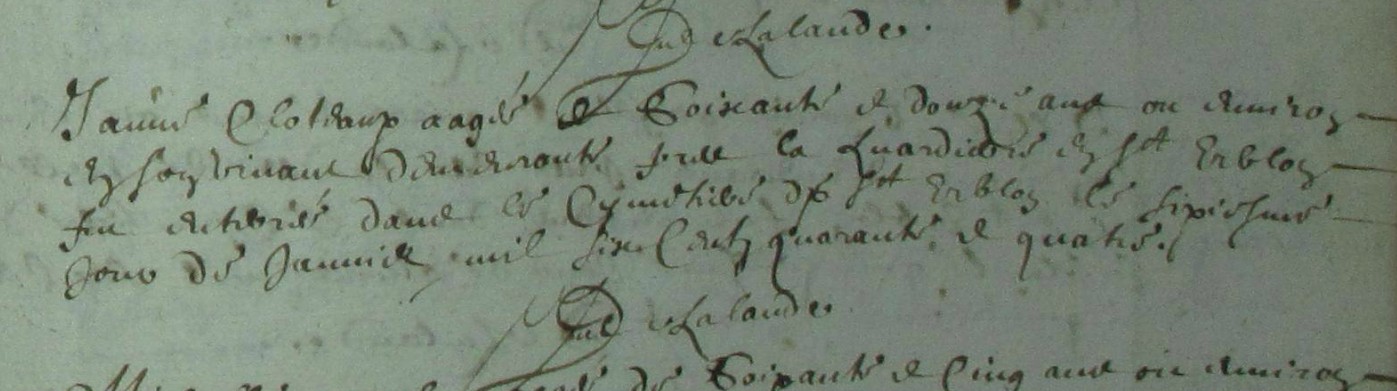 Jud delalande.
Janne Cloteaux aagée de Soixante et douze ans ou environ
en son vivant demeurante sur la en St Erblon
fut enterrée dans le Cymetiere de St Erblon le sixiesme
Jour de Janvier mil six Centz quarante et quatre.
Jud delalande.
de Soixante et Cinq ans ou environ